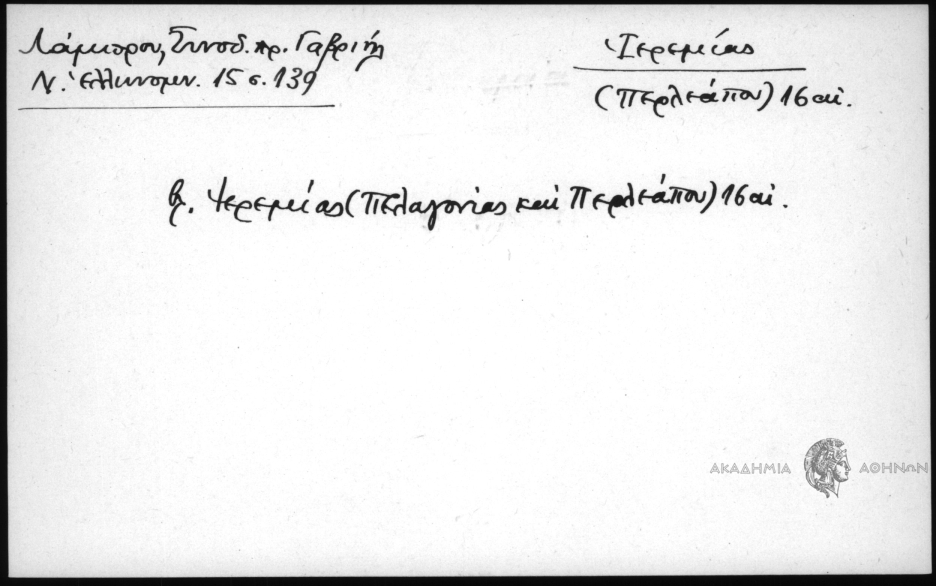 Λάμπρου, Συνοδ. πρ. Γαβριήλ
Ν. Ἑλληνομν. 15 σ. 139
Ἱερεμίας
(Περλεάπου) 16 αἰ.
βλ. Ἱερεμίας (Πελαγονίας καὶ Περλεάπου) 16 αἰ.
ΑΚΑΔΗΜΙΑ ΑΘΗΝΩΝ